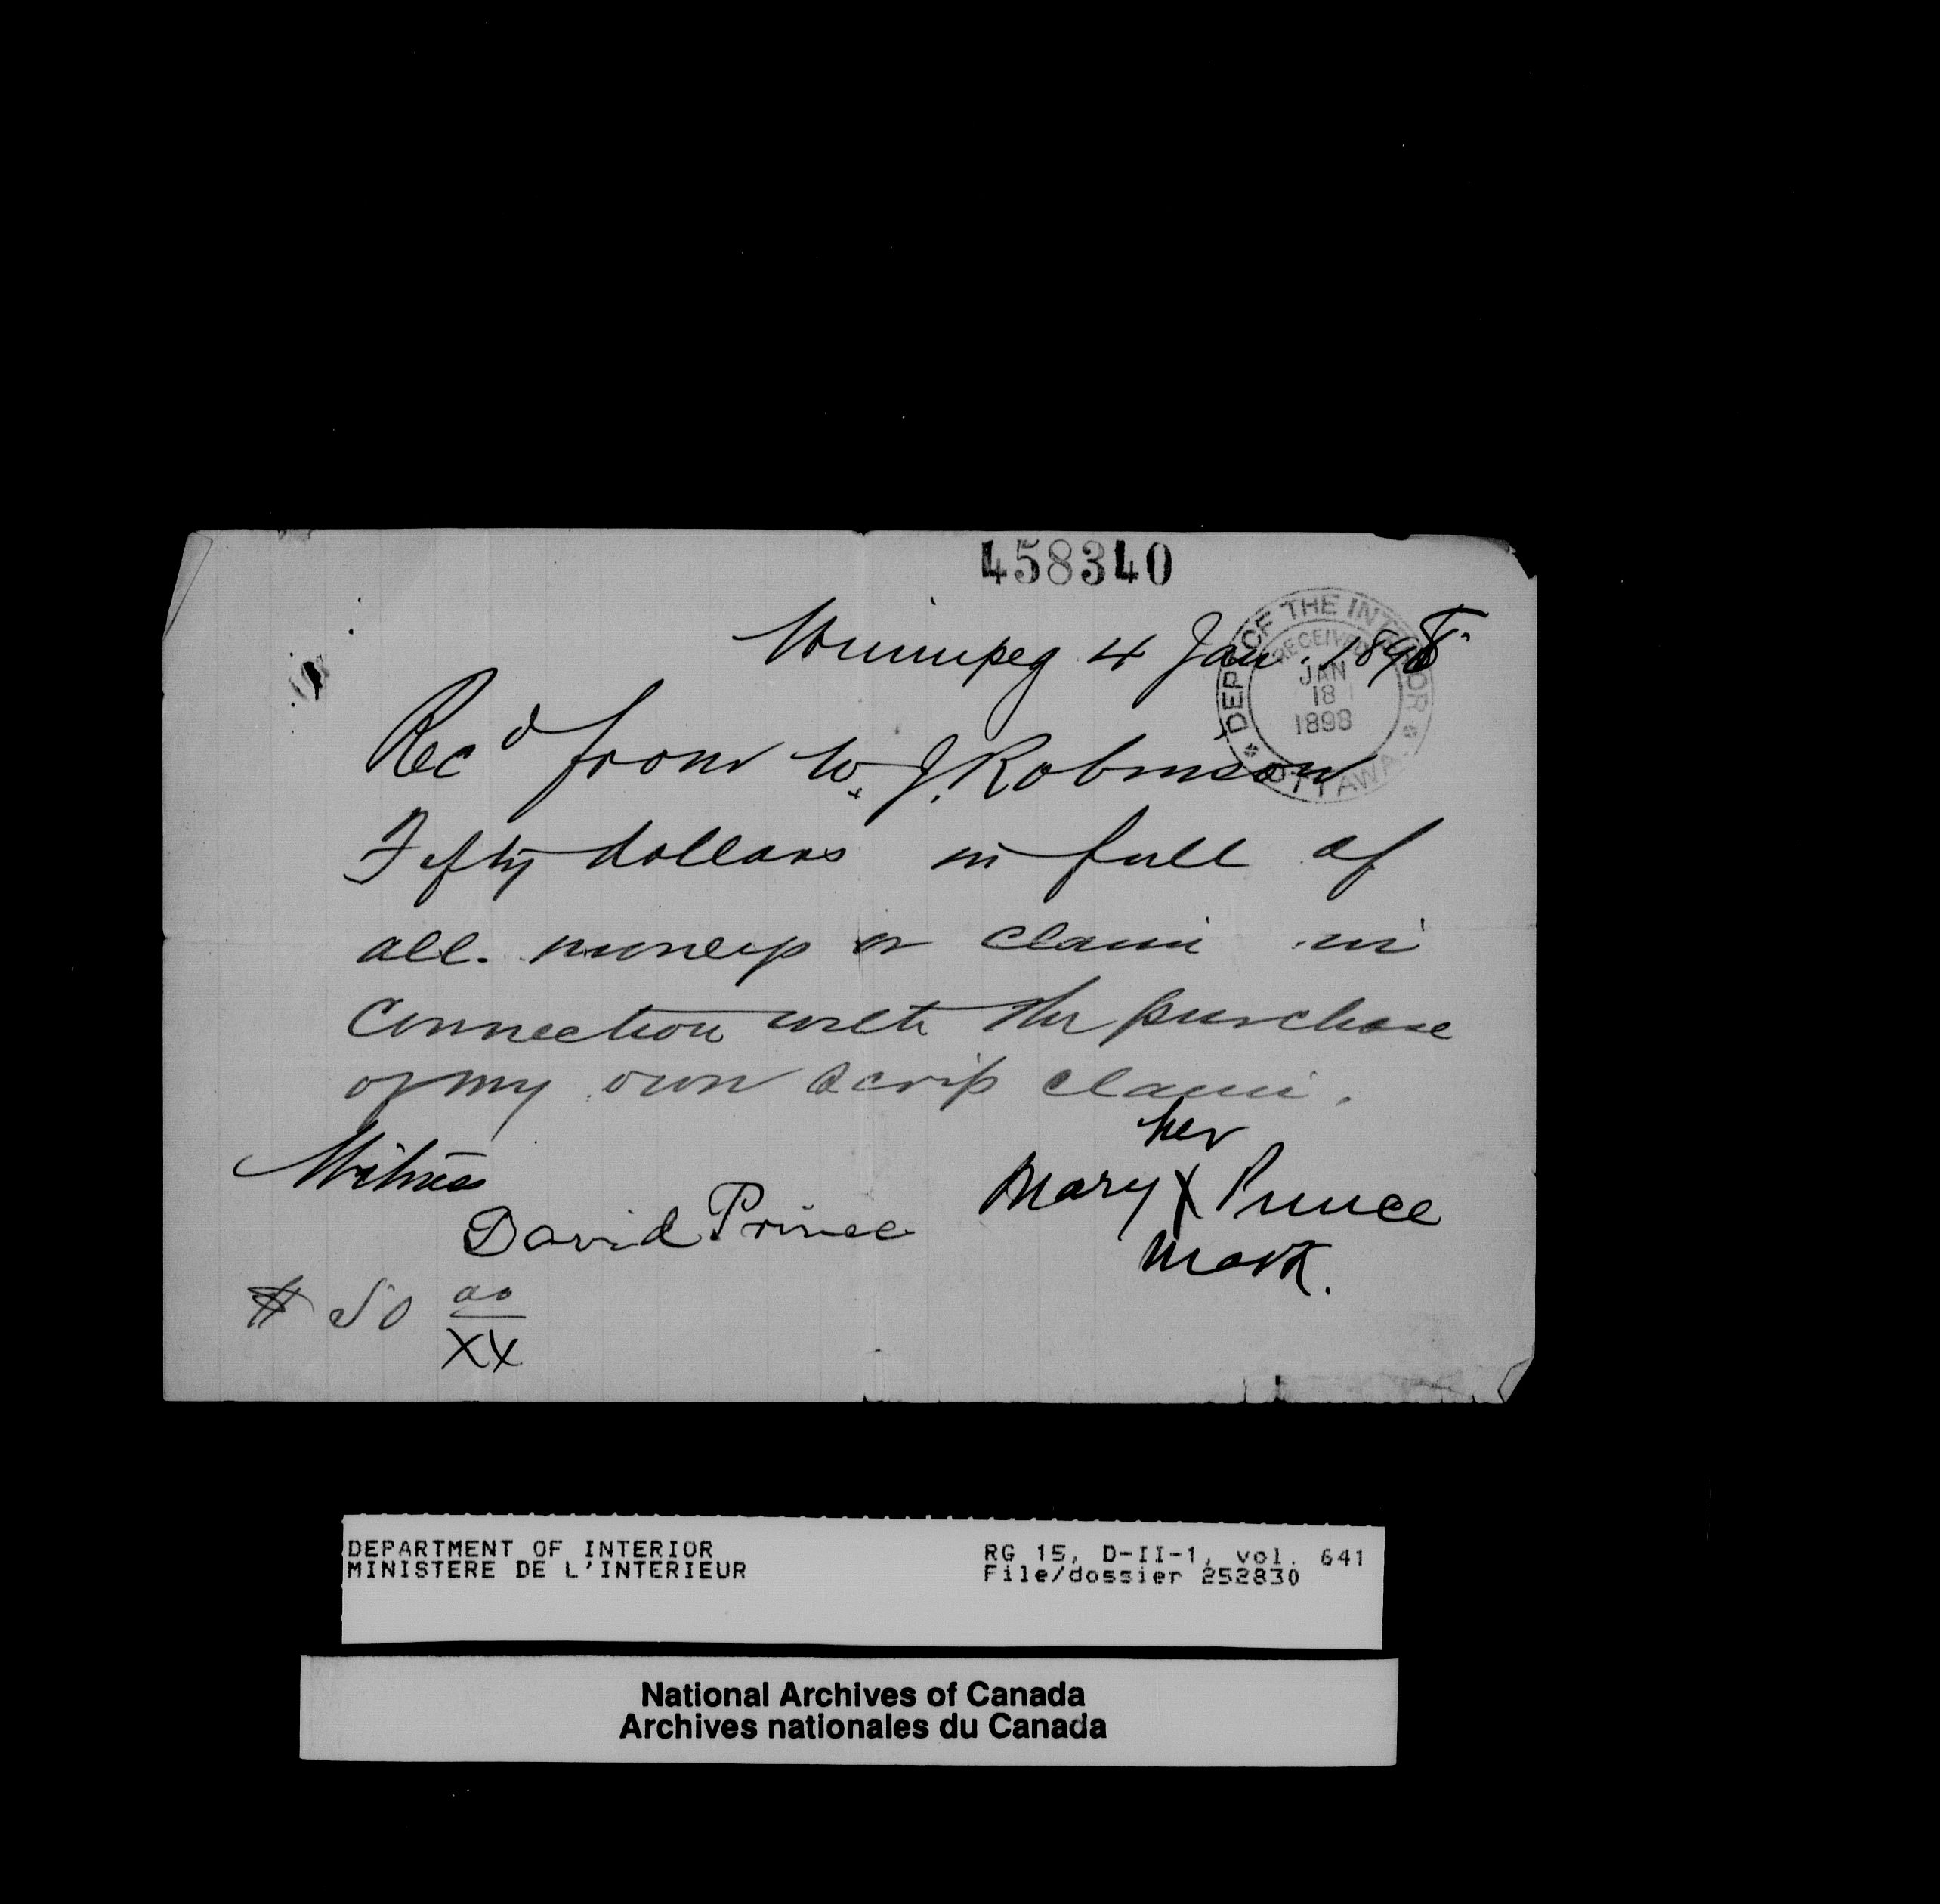 458340
Winnipeg 4 Jan. 1898
DEPT OF THE INTERIOR
RECEIVED
JAN
18
1898
OTTAWA
Recd from W. J. Robinson
Fifty dollars in full of
all moneys or claim in
connection with the purchase
of my own scrip claim.
her
Witness Mary X Prince
David Prince mark.
$ 50 00/XX
DEPARTMENT OF INTERIOR RG 15, D-II-1, vol. 641
MINISTERE DE L'INTERIEUR File/dossier 252830
National Archives of Canada
Archives nationales du Canada